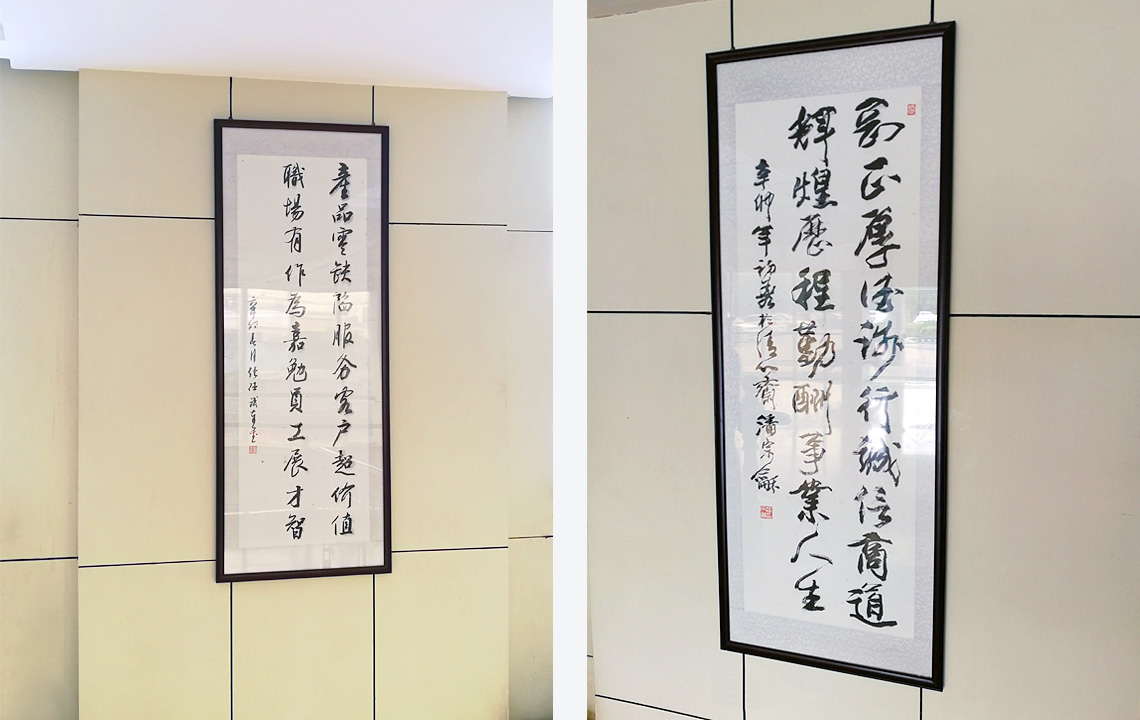 產品零缺陷服务客户超价值
職場有作為嘉勉員工展才智
辛卯春月
剛正厚德踐行誠信商道
輝煌歷程勤酬事業人生
辛卯年初夏於清心齋潘宗龢